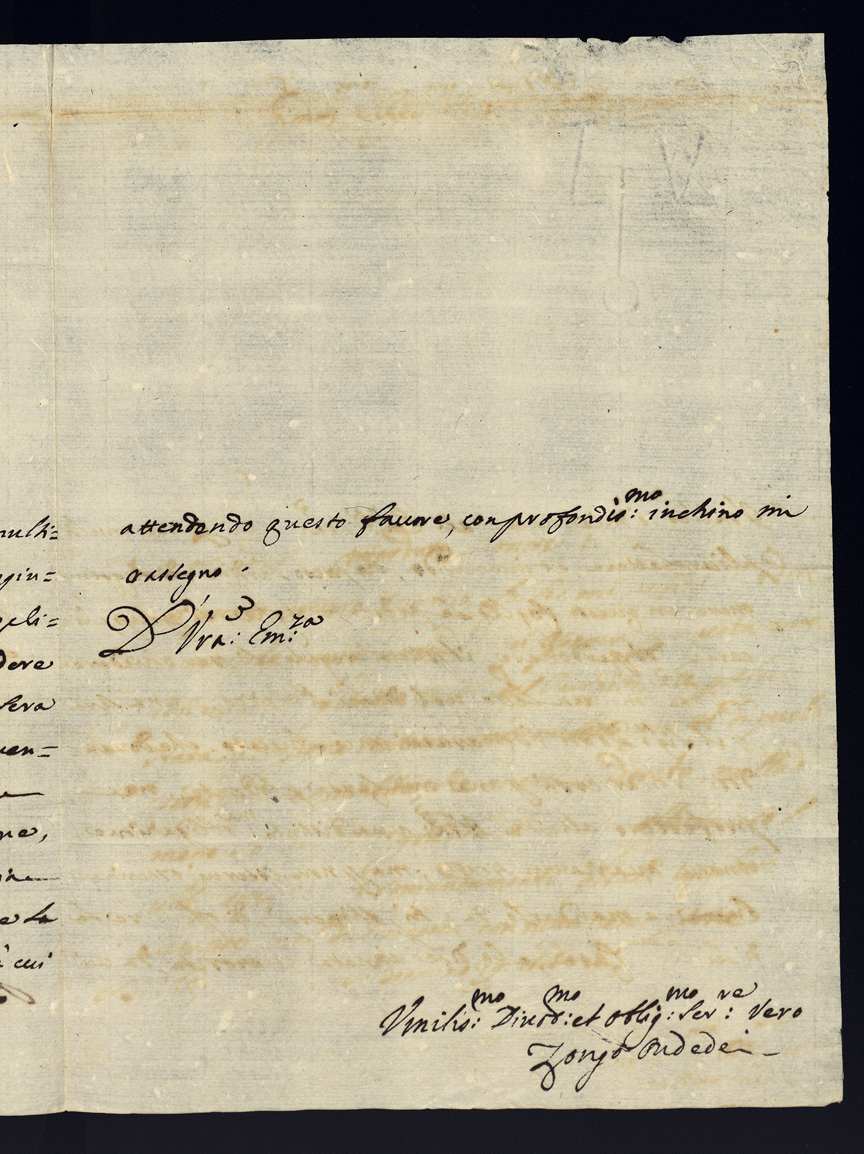 multi=
giu=
geli=
dere
sera
uen=
ne,
e la
à cui
attendendo questo fauore, con profondis:mo inchino mi
rassegno.
D' Vra: Em:za
Vmilis:mo Diuot:mo et oblig:mo Ser:re vero
Zongo Ondedei